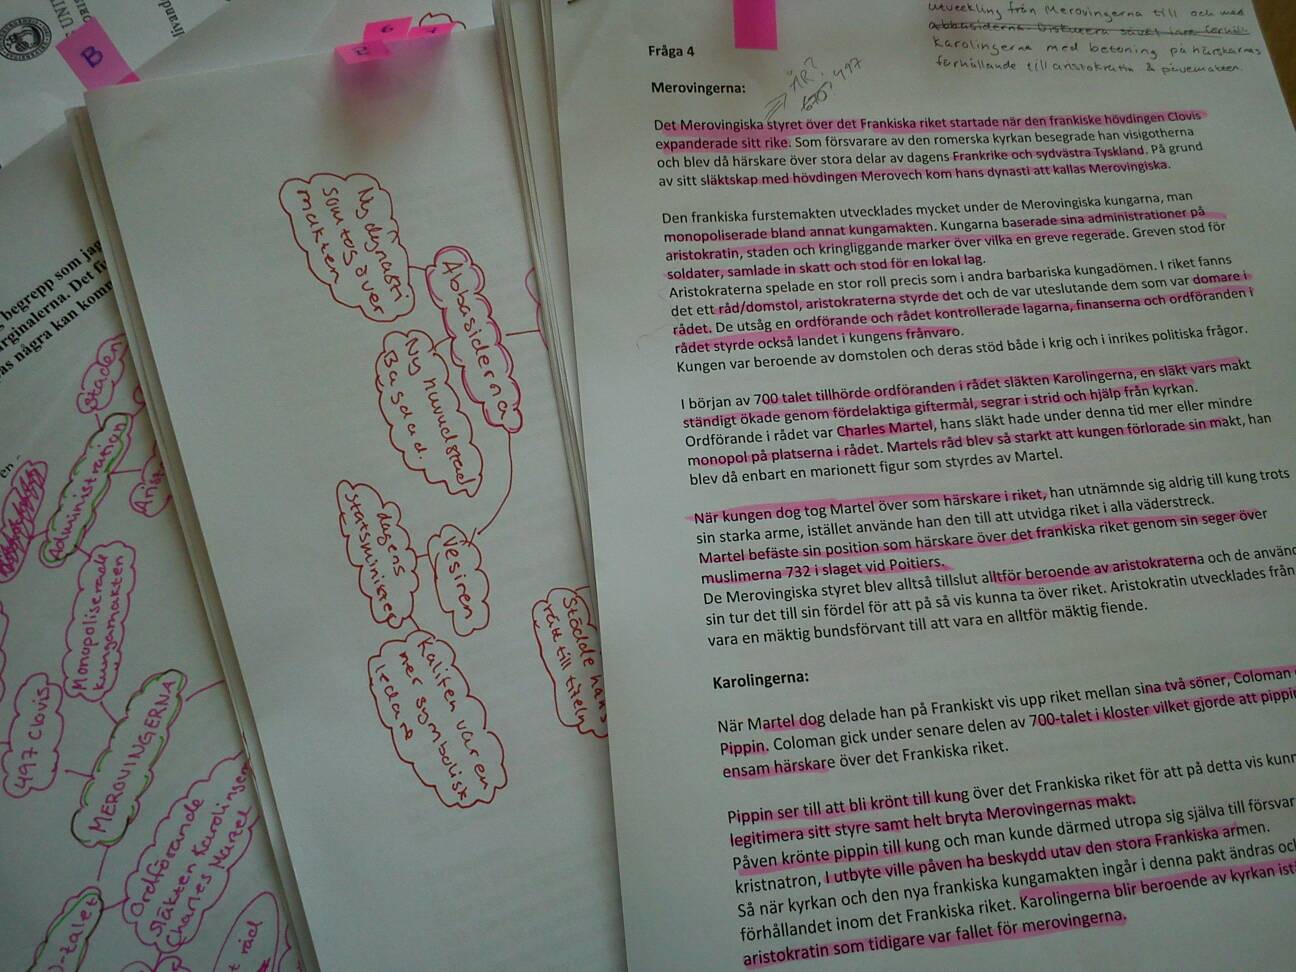 B
UNI
begrepp som jag
arginalerna. Det fi
as några kan komm
Staden
Administration
Monopoliserade
kungamakten
497 Clovis
MEROVINGERNA
Ordförande
släkten Karolingern
Charles Martel
0-talet
t råd
Ny dynasti
som togs över
makten
Abbasiderna
Ny huvudstad
Bagdad.
Vesiren
dagens
statsminister
Kalifen var en
mer symbolisk
ledare
Stödde hans
rätt till titeln
utveckling från Merovingerna till och med
Karolingerna med betoning på härskarnas
förhållande till aristokratin & påvemakten.
Fråga 4
ÅR?
497
Merovingerna:
Det Merovingiska styret över det Frankiska riket startade när den frankiske hövdingen Clovis
expanderade sitt rike. Som försvarare av den romerska kyrkan besegrade han visigotherna
och blev då härskare över stora delar av dagens Frankrike och sydvästra Tyskland. På grund
av sitt släktskap med hövdingen Merovech kom hans dynasti att kallas Merovingiska.
Den frankiska furstemakten utvecklades mycket under de Merovingiska kungarna, man
monopoliserade bland annat kungamakten. Kungarna baserade sina administrationer på
aristokratin, staden och kringliggande marker över vilka en greve regerade. Greven stod för
soldater, samlade in skatt och stod för en lokal lag.
Aristokraterna spelade en stor roll precis som i andra barbariska kungadömen. I riket fanns
det ett råd/domstol, aristokraterna styrde det och de var uteslutande dem som var domare i
rådet. De utsåg en ordförande och rådet kontrollerade lagarna, finanserna och ordföranden i
rådet styrde också landet i kungens frånvaro.
Kungen var beroende av domstolen och deras stöd både i krig och i inrikes politiska frågor.
I början av 700 talet tillhörde ordföranden i rådet släkten Karolingerna, en släkt vars makt
ständigt ökade genom fördelaktiga giftermål, segrar i strid och hjälp från kyrkan.
Ordförande i rådet var Charles Martel, hans släkt hade under denna tid mer eller mindre
monopol på platserna i rådet. Martels råd blev så starkt att kungen förlorade sin makt, han
blev då enbart en marionett figur som styrdes av Martel.
När kungen dog tog Martel över som härskare i riket, han utnämnde sig aldrig till kung trots
sin starka arme, istället använde han den till att utvidga riket i alla väderstreck.
Martel befäste sin position som härskare över det frankiska riket genom sin seger över
muslimerna 732 i slaget vid Poitiers.
De Merovingiska styret blev alltså tillslut alltför beroende av aristokraterna och de använd
sin tur det till sin fördel för att på så vis kunna ta över riket. Aristokratin utvecklades från
vara en mäktig bundsförvant till att vara en alltför mäktig fiende.
Karolingerna:
När Martel dog delade han på Frankiskt vis upp riket mellan sina två söner, Coloman
Pippin. Coloman gick under senare delen av 700-talet i kloster vilket gjorde att pippin
ensam härskare över det Frankiska riket.
Pippin ser till att bli krönt till kung över det Frankiska riket för att på detta vis kunn
legitimera sitt styre samt helt bryta Merovingernas makt.
Påven krönte pippin till kung och man kunde därmed utropa sig själva till försvar
kristnatron, I utbyte ville påven ha beskydd utav den stora Frankiska armen.
Så när kyrkan och den nya frankiska kungamakten ingår i denna pakt ändras oc
förhållandet inom det Frankiska riket. Karolingerna blir beroende av kyrkan istä
aristokratin som tidigare var fallet för merovingerna.